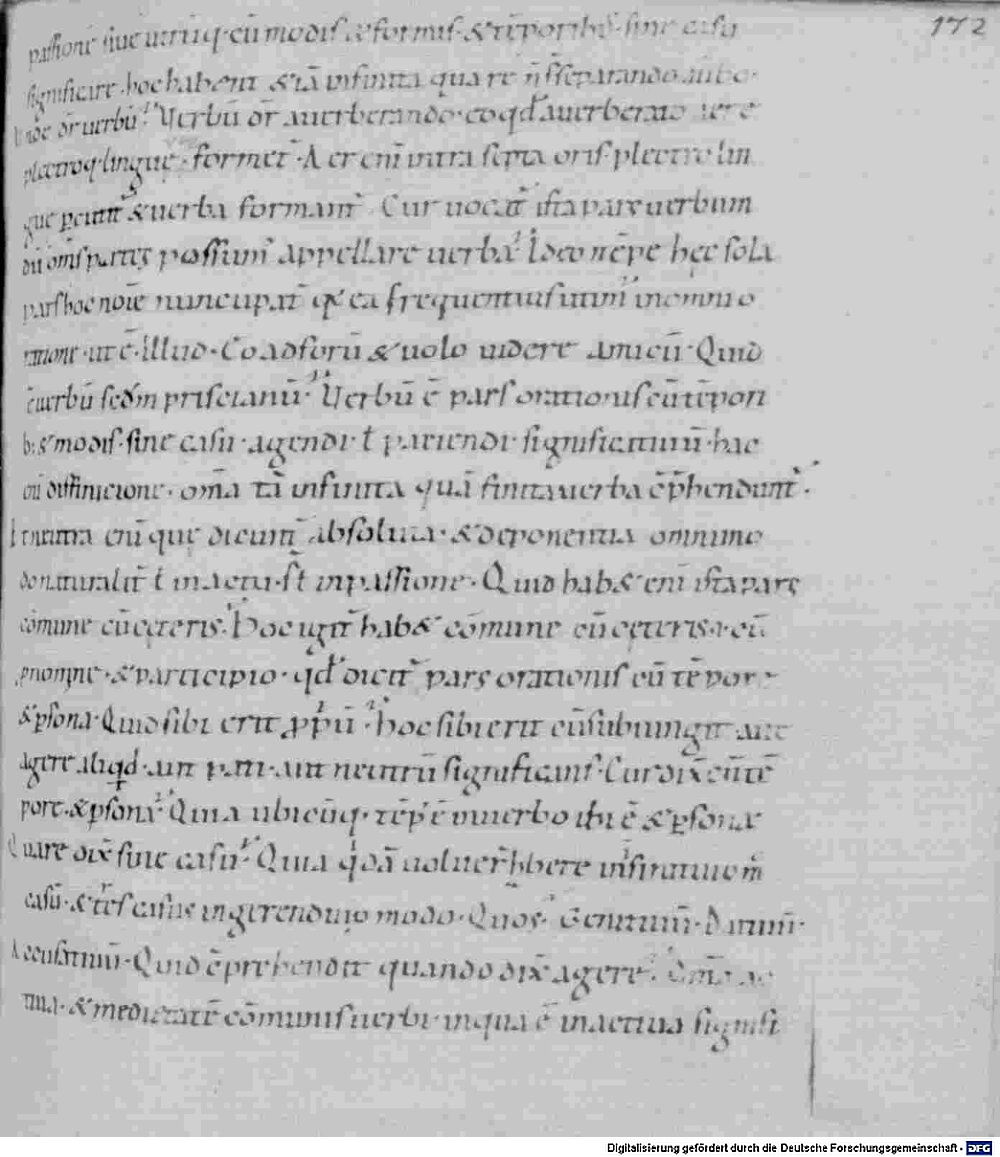 172
passione siue utrūq; cū modis & formis & tēporibꝰ sine casu
significare hoc habent & tā infinita quare n̄ separando
Unde dr̄ uerbū? Verbū dr̄ a uerberando eo qd̄ auerberato aere
plectroq; linguę formet᷑. Aer enī intra septa oris plectro lin
guę & uerba formant᷑ Cur uocat᷑ ista pars uerbum
oms partes possum᷒ appellare uerba? Ideo nēpe hęc sola
pars hoc noīe nuncupat᷑ ea frequentius utim᷒ in omni o
ratione ut ē illud. Eo ad forū & uolo uidere amicū. Quid
ē uerbū scdm priscianū? Verbū ē pars orationis cū tēpori
b; & modis sine casu agendi ł paciendi significatiuū hac
diffinicione om̄a tā infinita quā finita uerba cp̄hendunt᷑.
enī quę dicunt᷑ absoluta & deponentia omnimo
do naturalit᷑ ł in actu st̄ in passione. Quid hab& enī ista pars
cōmune cū cęteris? Hoc hab& cōmune cū cęteris cū
pnomine & participio qd̄ dicit᷑ pars orationis cū tēpore
& psona. Quid sibi erit ꝓpū? Hoc sibi erit cū subiungit aut
agere aliqd aut pati aut neutrū significans. Cur dix̄ cū tē
pore & psona? Quia ubicūq; tēp᷒ ē in uerbo ibi ē & psona
Quare dix̄ sine casu? Quia uoluer̄ hb̄ere infinitiuom̄
casū & tres casus in gerendiuo modo. Quos? Genitiuū. Datiuū.
Accusatiuū. Quid cp̄rehendit quando dix̄ agere? Om̄a ac
tiua & medietatē cōmunis uerbi in qua ē in actiua signifi
Digitalisierung gefördert durch die Deutsche Forschungsgemeinschaft - DFG